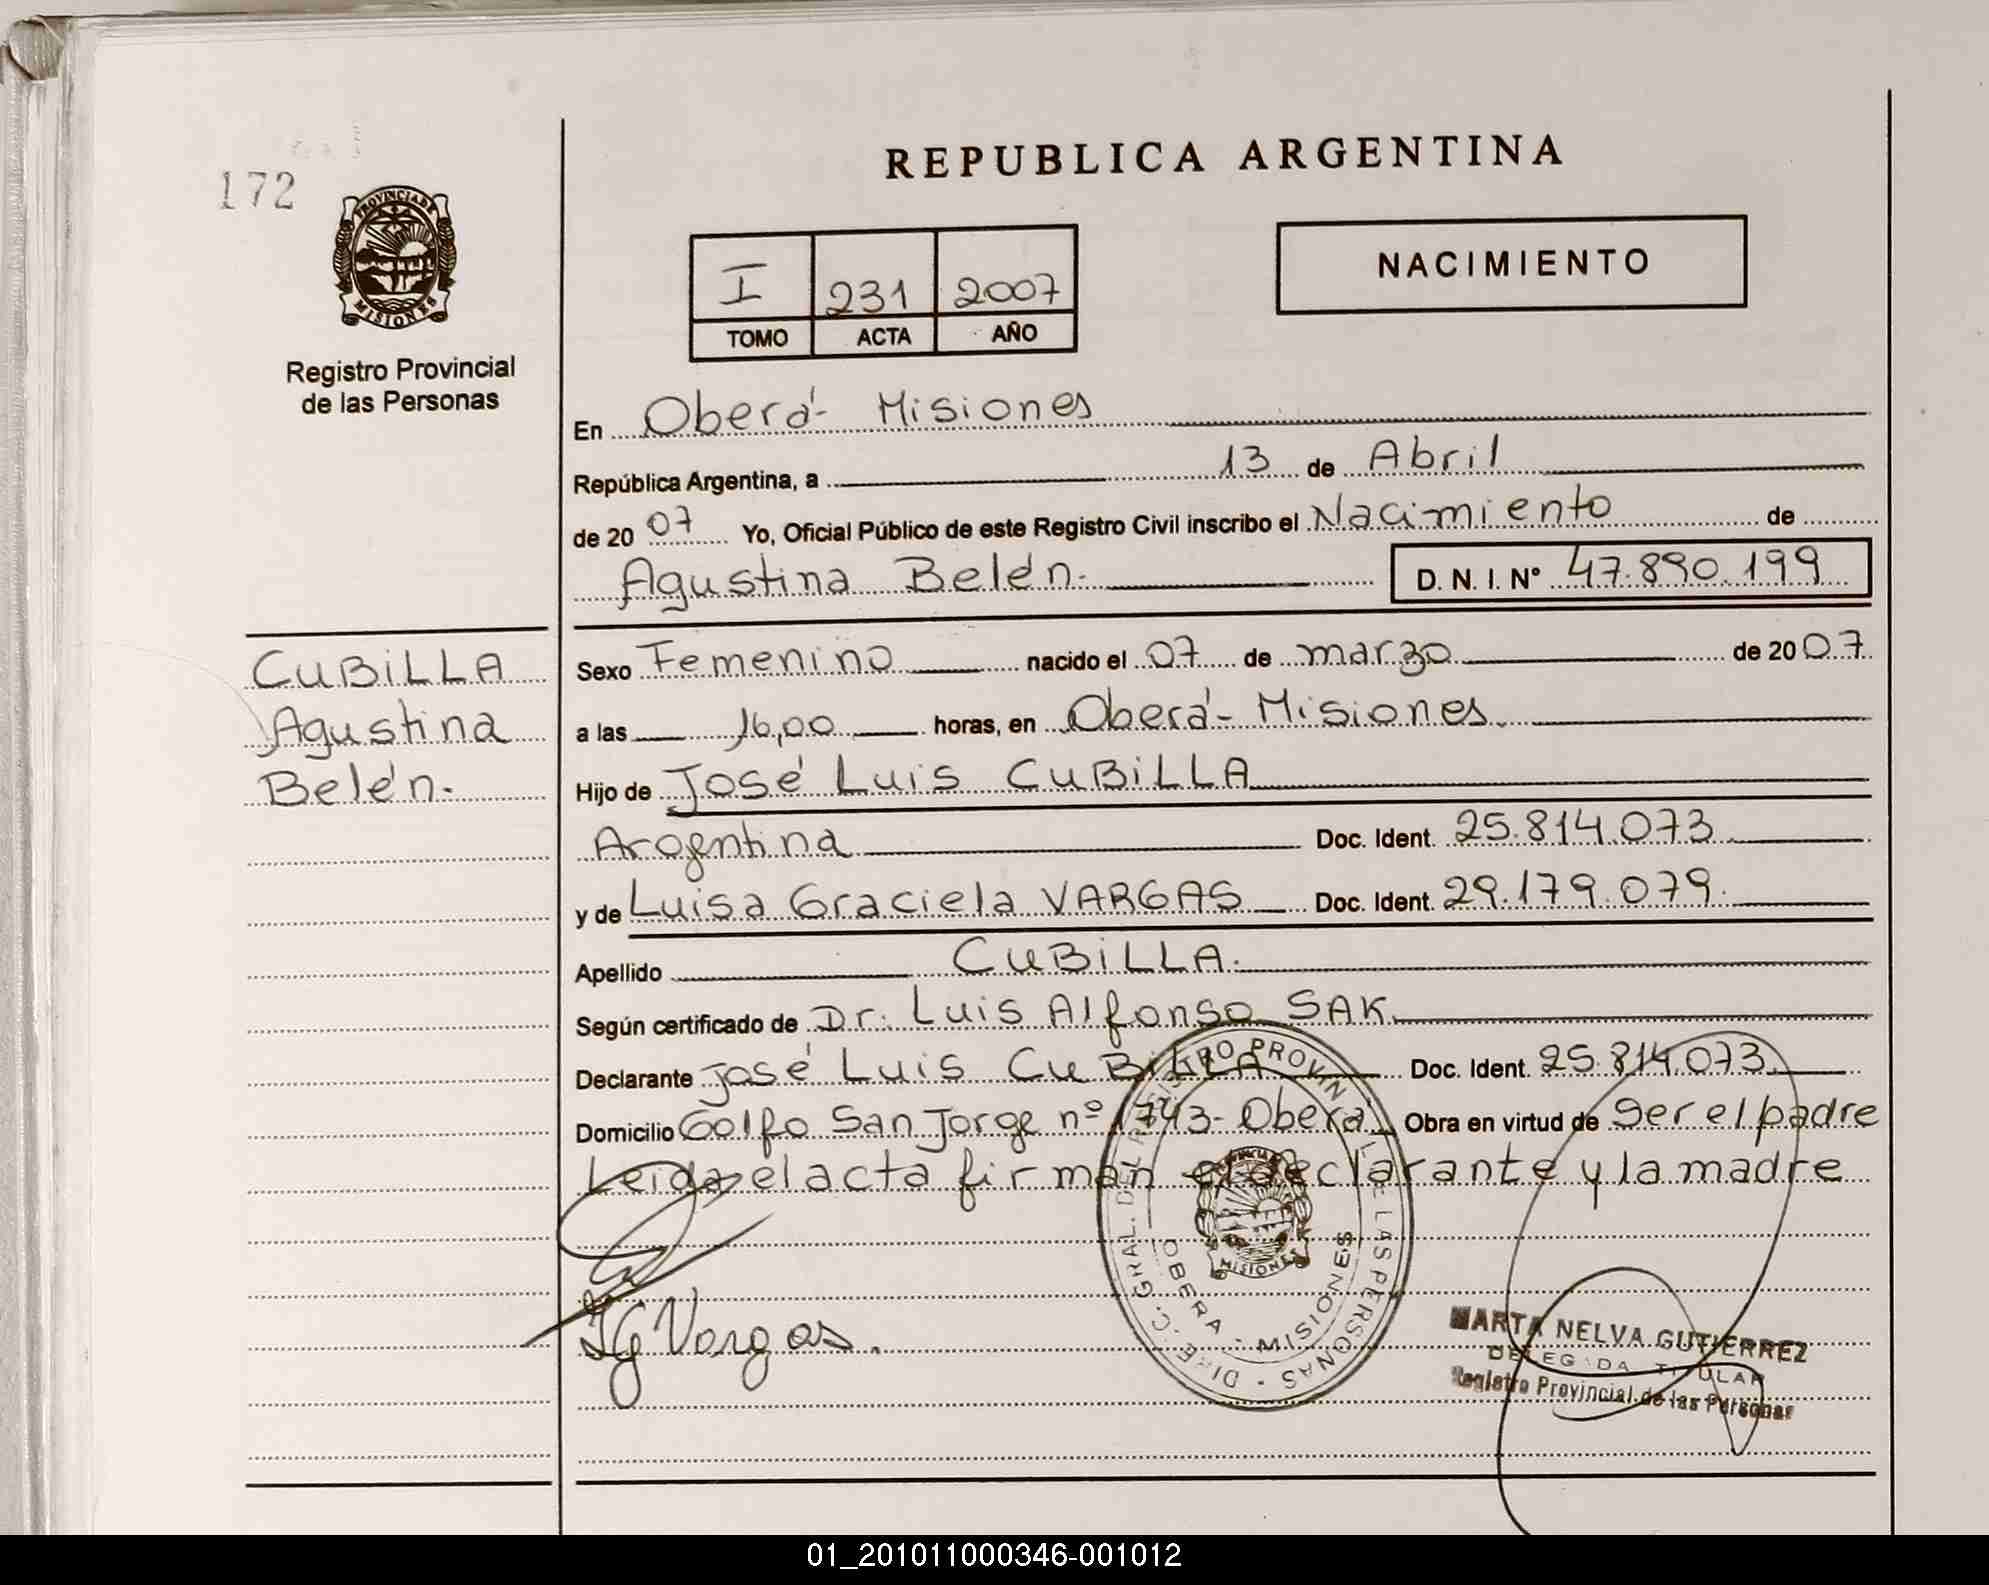 172
PROVINCIA DE
MISIONES
Registro Provincial
de las Personas
REPUBLICA ARGENTINA
I 231 2007
TOMO ACTA AÑO
NACIMIENTO
En Oberá - Misiones
República Argentina, a 13 de Abril
de 20 07 Yo, Oficial Público de este Registro Civil inscribo el Nacimiento de
Agustina Belén. D. N. I. Nº 47.890.199
CUBiLLA
Agustina
Belén.
Sexo Femenino nacido el 07 de marzo de 20 07
a las 16,00 horas, en Oberá - Misiones.
Hijo de José Luis CUBiLLA
Argentina Doc. Ident. 25.814.073
y de Luisa Graciela VARGAS Doc. Ident. 29.179.079.
Apellido CUBiLLA.
Según certificado de Dr. Luis Alfonso SAK.
Declarante José Luis CUBiLLA Doc. Ident. 25.814.073.
Domicilio Golfo San Jorge nº 1743 - Oberá Obra en virtud de ser el padre
Leida el acta firman el declarante y la madre
LG Vargas.
DIREC. GRAL. DEL REGISTRO PROVINCIAL DE LAS PERSONAS -
OBERA - MISIONES
MISIONES
MARTA NELVA GUTIERREZ
DELEGADA TITULAR
Registro Provincial de las Personas
01_201011000346-001012